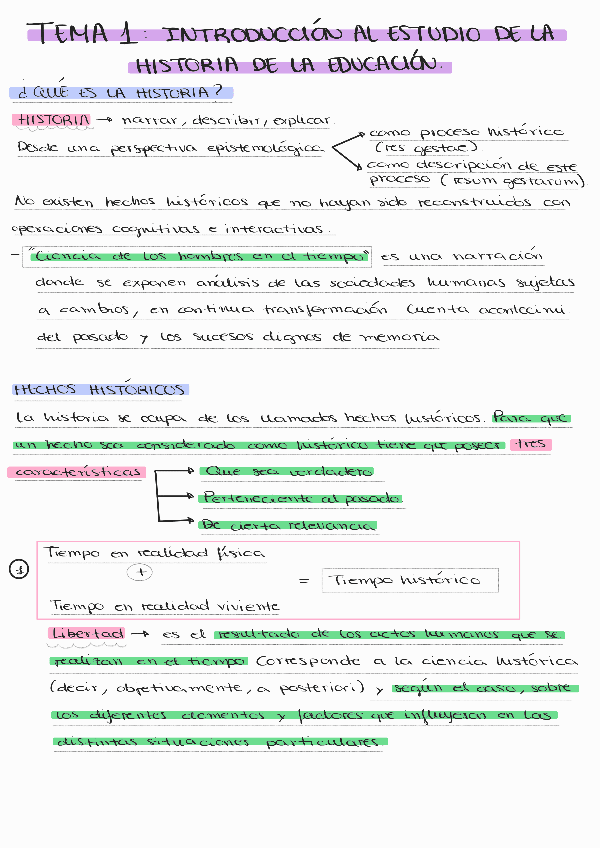 TEMA 1: INTRODUCCIÓN AL ESTUDIO DE LA
HISTORIA DE LA EDUCACIÓN.
¿QUÉ ES LA HISTORIA?
HISTORIA → narrar, describir, explicar.
Desde una perspectiva epistemológica
como proceso histórico
(res gestae)
como descripción de este
proceso (resum gestarum)
No existen hechos históricos que no hayan sido reconstruidos con
operaciones cognitivas e interactivas.
- "Ciencia de los hombres en el tiempo" es una narración
donde se exponen análisis de las sociedades humanas sujetas
a cambios, en continua transformación. Cuenta acontecimi.
del pasado y los sucesos dignos de memoria
HECHOS HISTÓRICOS
La historia se ocupa de los llamados hechos históricos. Para que
un hecho sea considerado como histórico tiene que poseer tres
características
Que sea verdadero
Perteneciente al pasado.
De cierta relevancia
1
Tiempo en realidad física
+
= Tiempo histórico
Tiempo en realidad viviente
Libertad → es el resultado de los actos humanos que se
realizan en el tiempo. Corresponde a la ciencia histórica
(decir, objetivamente, a posteriori) y según el caso, sobre
los diferentes elementos y factores que influyeron en las
distintas situaciones particulares